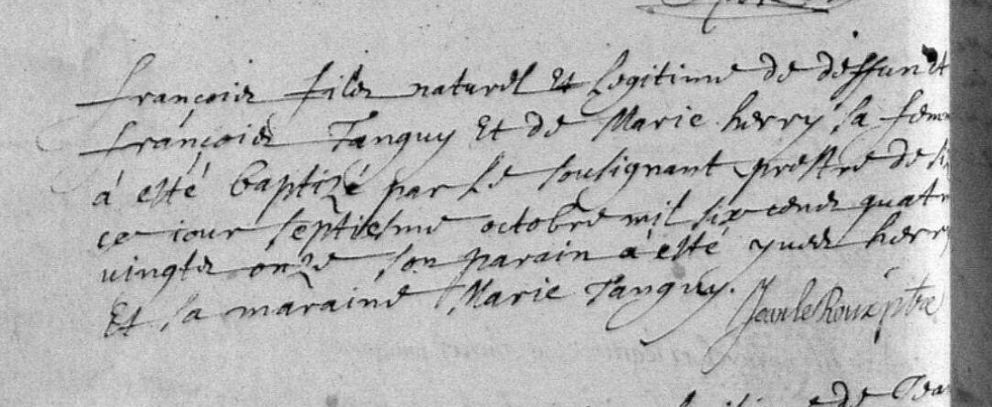 françois fils naturel et legitime de deffunct
françois Tanguy Et de Marie herry sa fem
á esté baptizé par le sousignant prestre de
ce iour septiesme octobre mil six cents quatr
vingts onze son parain a esté yves herr
Et sa maraine Marie Tanguy. Jan le Roux ptre
de Jea